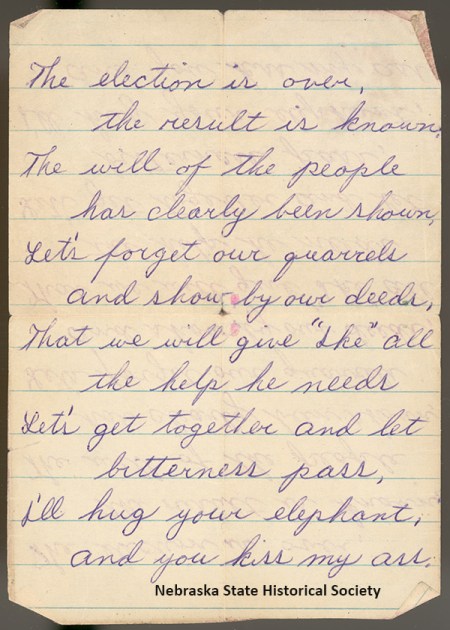 The election is over,
the result is known,
The will of the people
has clearly been shown,
Let's forget our quarrels
and show by our deeds,
That we will give "Ike" all
the help he needs
Let's get together and let
bitterness pass,
I'll hug your elephant,
and you kiss my ass.
Nebraska State Historical Society